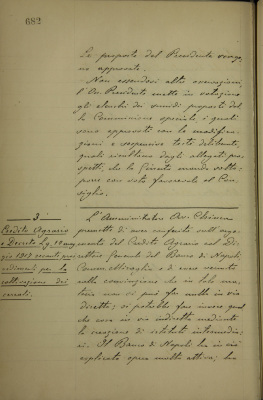 682
Le proposte del Presidente vengo,
no approvate.
Non essendovi altre osservazioni,
l'On. Presidente mette in votazione
gli elenchi dei sussidi proposti dal,
la Commissione speciale, i quali
sono approvati con le modifica,
zioni e soppressioni testé deliberate,
quali risultano dagli allegati pro,
spetti, che la Giunta manda sotto,
porre con voto favorevole al Con,
siglio.
3
Credito Agrario
e Decreto Lg. 10 mag,
gio 1917 recante prov,
vedimenti per la
coltivazione dei
cereali.
L'Amministratore Av.
premette di aver conferito sull'argo,
mento del Credito Agrario col Di,
rettore Generale del Banco di Napoli
Comm. Miraglia e di aver tratto
nella convinzione che in tale ma,
teria non si può far molto in via
diretta; si potrebbe fare invece qual
che cosa in via indiretta mediante
la creazione di istituti intermedia,
ri. Il Banco di Napoli ha in ciò
esplicato opera molto attiva; ha